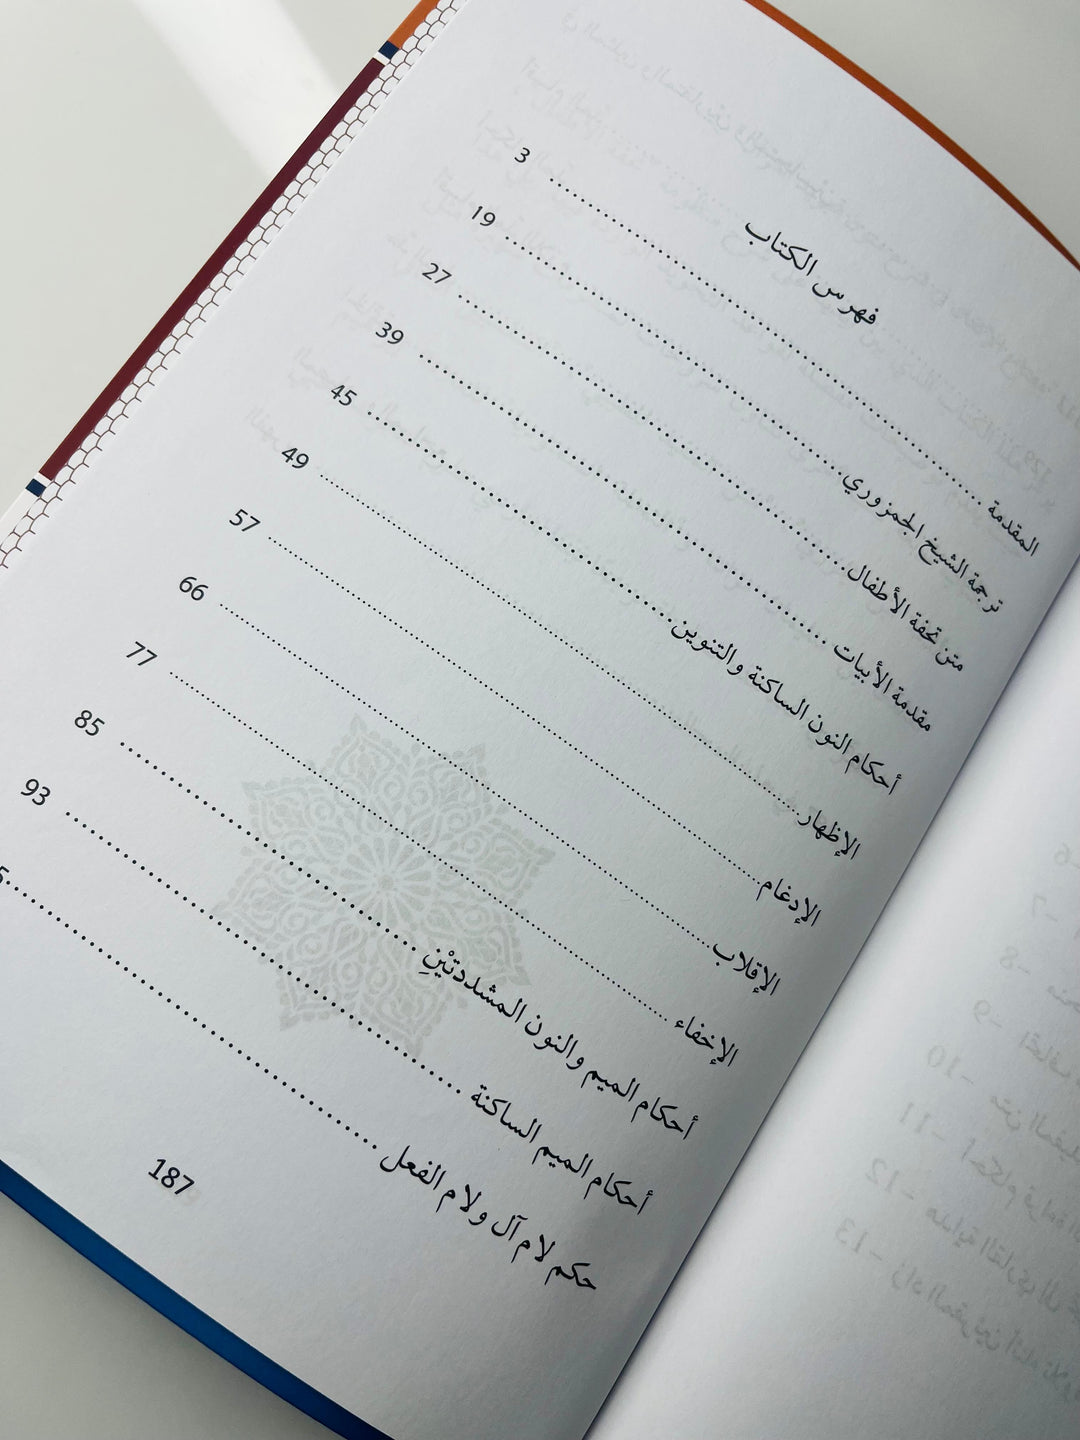 فهرس الكتاب
المقدمة ........ 3
ترجمة الشيخ الجمزوري ........ 19
متن تحفة الأطفال ........ 27
مقدمة الأبيات ........ 39
أحكام النون الساكنة والتنوين ........ 45
الإظهار ........ 49
الإدغام ........ 57
الإقلاب ........ 66
الإخفاء ........ 77
أحكام الميم والنون المشددتيْنِ ........ 85
أحكام الميم الساكنة ........ 93
حكم لام آل ولام الفعل ........
187